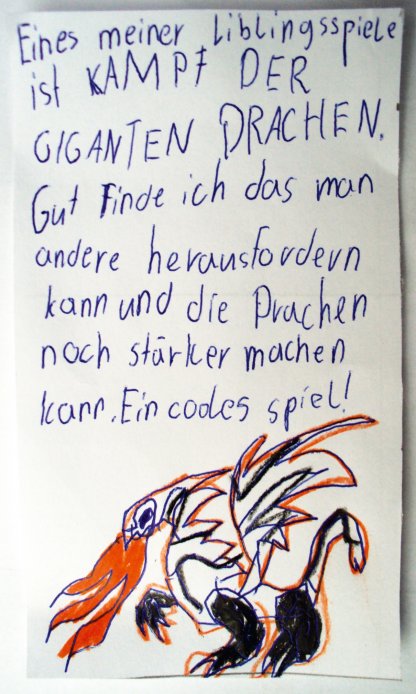 Eines meiner Liblingsspiele
ist KAMPF DER
GIGANTEN DRACHEN.
Gut Finde ich das man
andere herausfordern
kann und die Drachen
noch stärker machen
kann. Ein cooles spiel!